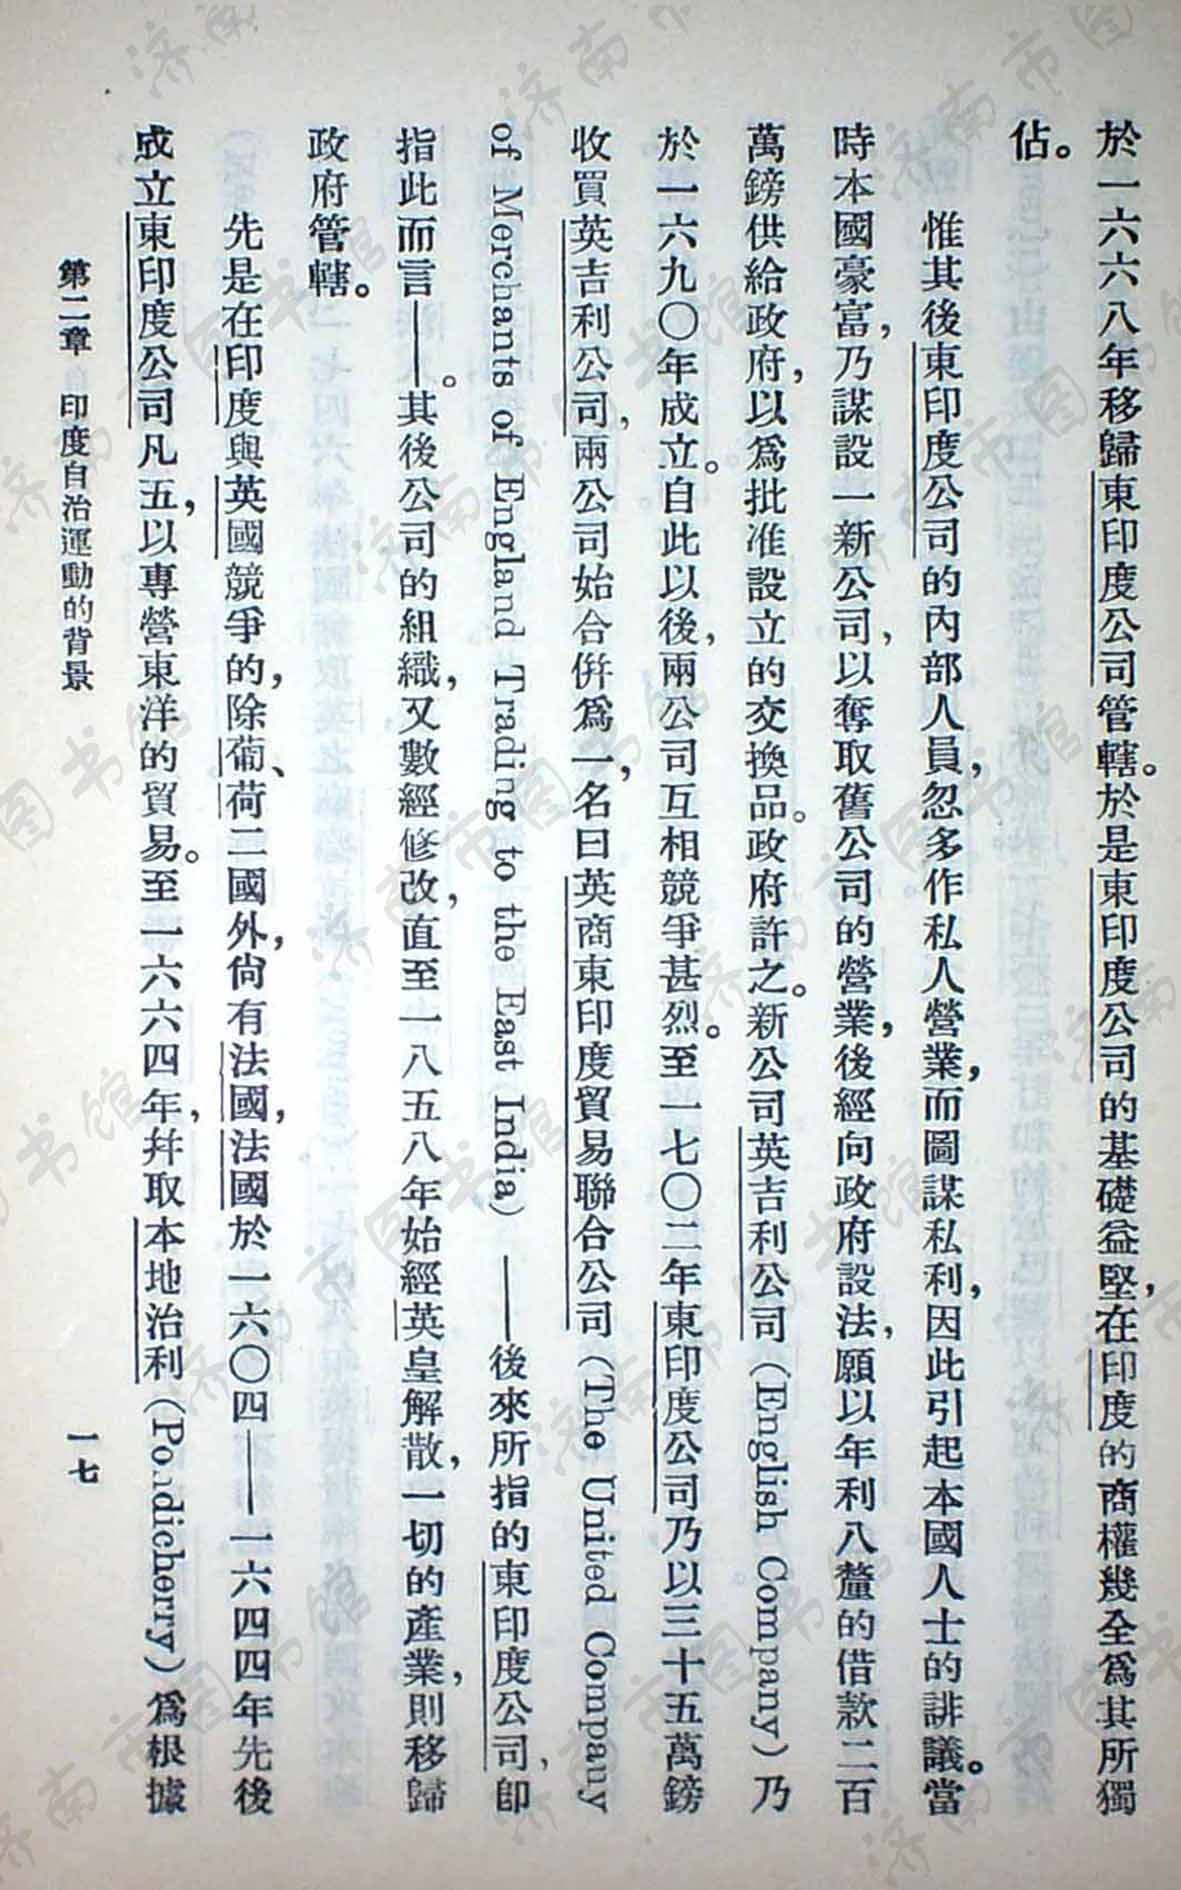 於一六六八年移歸東印度公司管轄。於是東印度公司的基礎益堅，在印度的商權幾全爲其所獨
佔。
惟其後東印度公司的內部人員，忽多作私人營業，而圖謀私利，因此引起本國人士的誹議。當
時本國豪富，乃謀設一新公司，以奪取舊公司的營業，後經向政府設法，願以年利八釐的借款二百
萬鎊供給政府，以爲批准設立的交換品。政府許之。新公司英吉利公司（English Company）乃
於一六九〇年成立。自此以後，兩公司互相競爭甚烈。至一七〇二年東印度公司乃以三十五萬鎊
收買英吉利公司，兩公司始合併爲一，名曰英商東印度貿易聯合公司（The United Company
of Merchants of England Trading to the East India）——後來所指的東印度公司，卽
指此而言——。其後公司的組織，又數經修改，直至一八五八年始經英皇解散，一切的產業，則移歸
政府管轄。
先是在印度與英國競爭的，除葡、荷二國外，尙有法國，法國於一六〇四——一六四四年先後
成立東印度公司凡五，以專營東洋的貿易。至一六六四年，幷取本地治利（Pondicherry）爲根據
第二章 印度自治運動的背景
一七
济南市图书馆